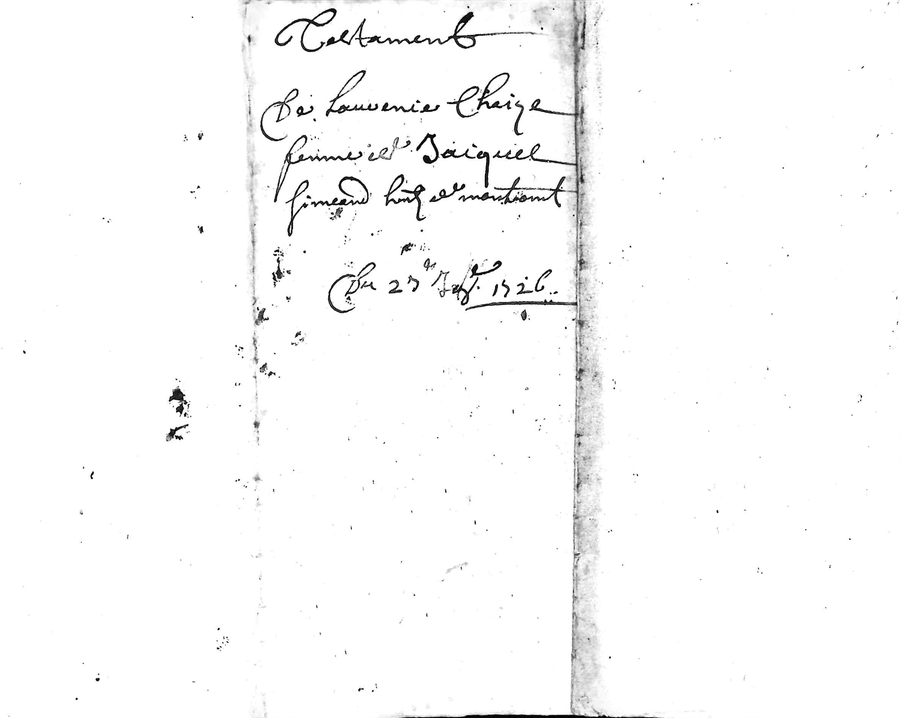 Testament
De Lauvenie Chaize
femme de Jaiquel
simeand de montromt
Du 23e 1726